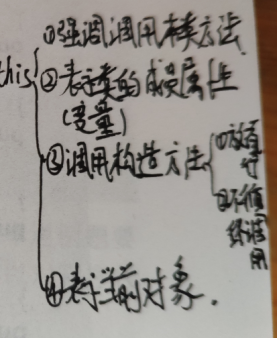 this
①强调调用本类方法
②表示类的成员属性
(变量)
③调用构造方法
①放首
行
②不能
循环调
用
④表示当前对象.